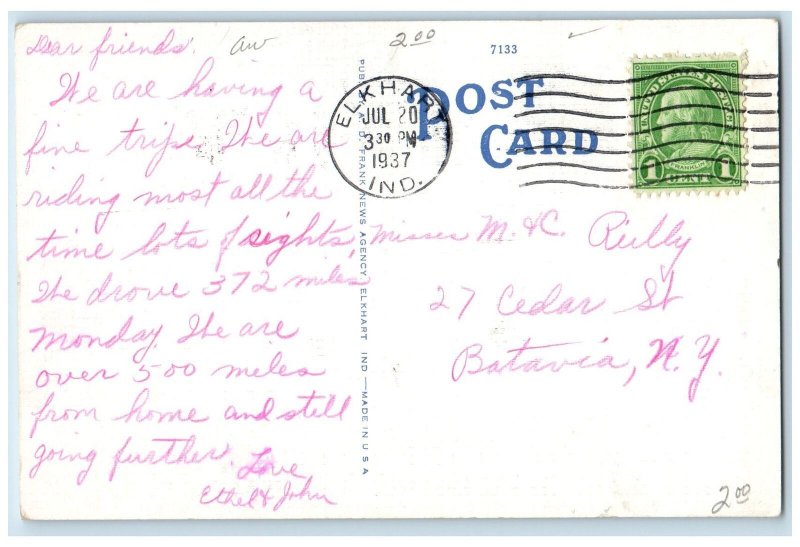 Dear friends.
We are having a
fine trip. We are
riding most all the
time lots of sights,
We drove 372 miles
Monday. We are
over 500 miles
from home and still
going further.
Love,
Ethel & John
aw
2.00
7133
POST
CARD
ELKHART
JUL 20
3 30 PM
1937
IND.
UNITED STATES POSTAGE
FRANKLIN
1 CENT 1
PUB. BY A. D. FRANK NEWS AGENCY, ELKHART IND.—MADE IN U S A
Misses M. & C. Reilly
27 Cedar St
Batavia, N.Y.
2.00